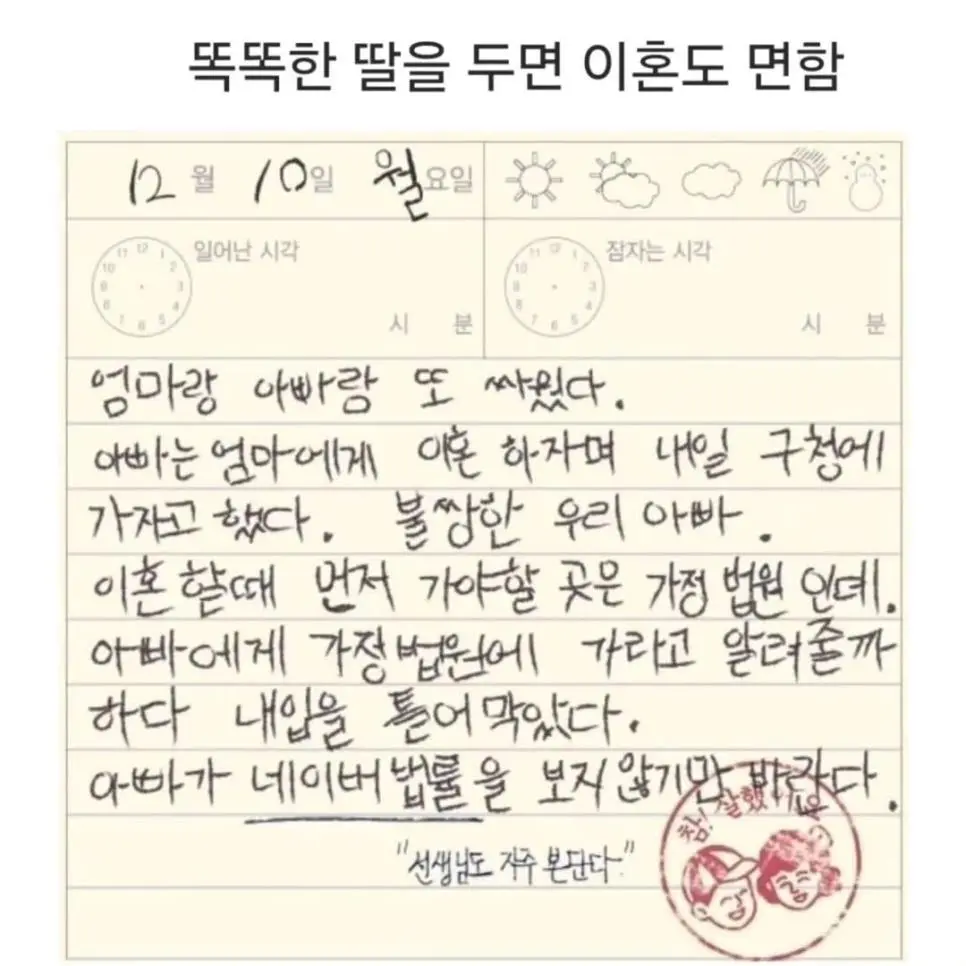 똑똑한 딸을 두면 이혼도 면함
12 월 10 일 월 요일
일어난 시각
잠자는 시각
12 1 2 3 4 5 6 7 8 9 10 11
12 1 2 3 4 5 6 7 8 9 10 11
시 분
시 분
엄마랑 아빠랑 또 싸웠다.
아빠는 엄마에게 이혼 하자며 내일 구청에
가자고 했다. 불쌍한 우리 아빠.
이혼 할때 먼저 가야할 곳은 가정 법원 인데.
아빠에게 가정법원에 가라고 알려줄까
하다 내입을 틀어막았다.
아빠가 네이버 법률을 보지 않기만 바란다.
참! 잘했어요
"선생님도 자주 본단다."